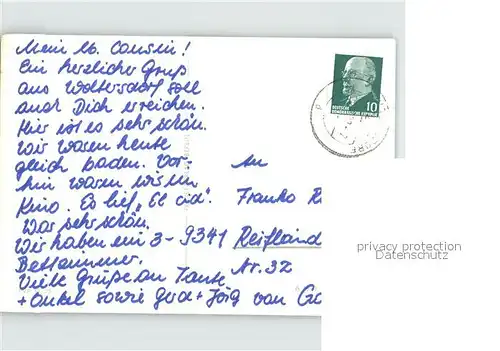 Mein lb. Cousin!
Ein herzlicher Gruß
aus Woltersdorf soll
auch Dich erreichen.
Hier ist es sehr schön.
Wir waren heute
gleich baden. Vor-
hin waren wir im
Kino. Es lief „El Cid".
War sehr schön.
Wir haben ein 3-
Bettzimmer.
Viele Grüße an Tante
+ Onkel sowie Gerd + Jörg von
An
Franko R
9341 Reifland
Nr. 32
DEUTSCHE
DEMOKRATISCHE REPUBLIK
10
privacy protection
Datenschutz